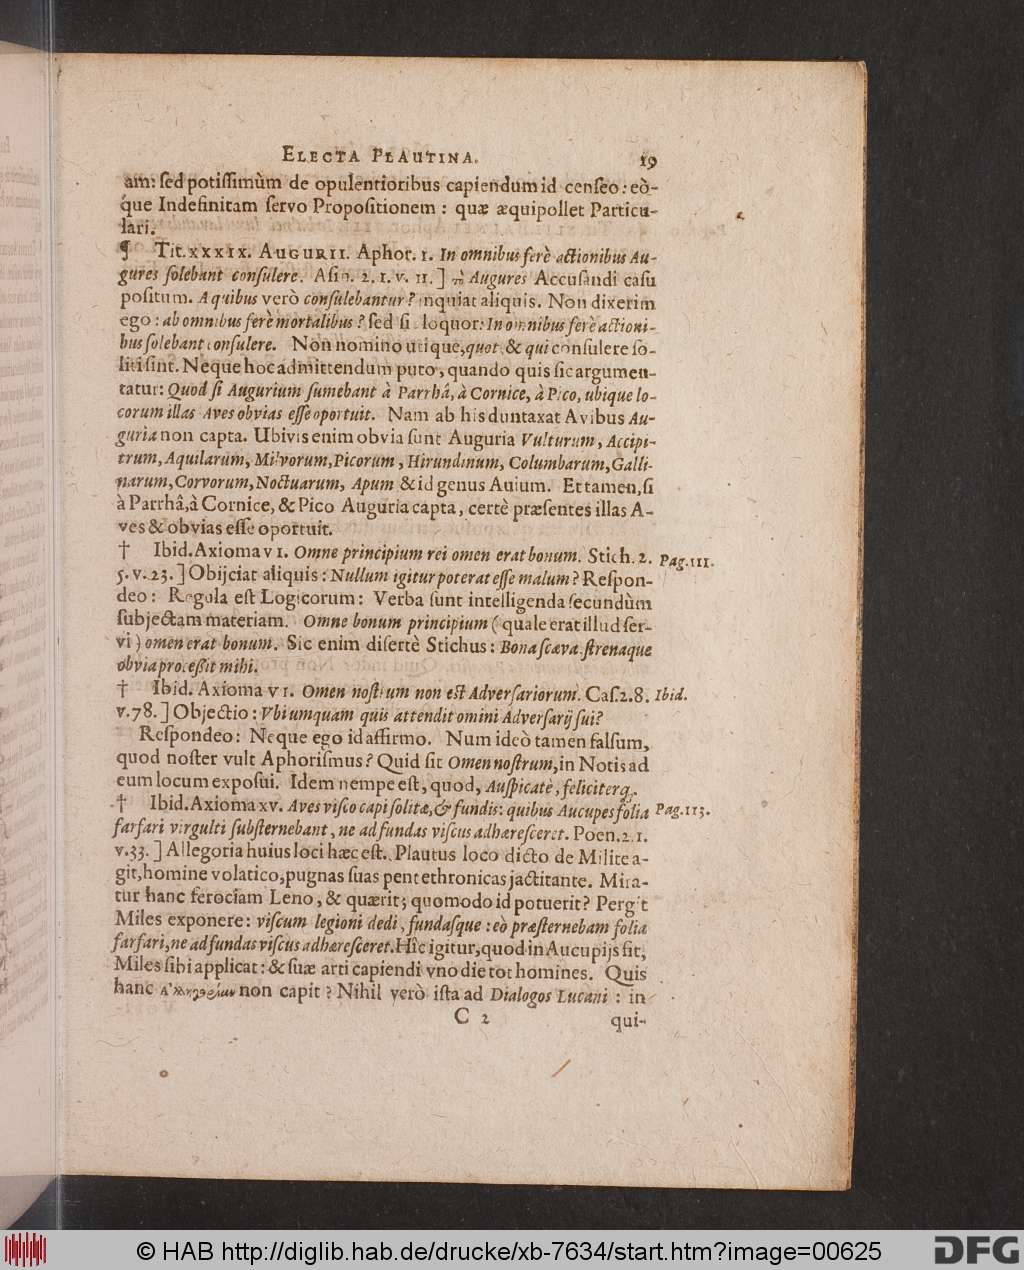 ELECTA PLAUTINA. 19
am: sed potissimùm de opulentioribus capiendum id censeo: eò-
que Indefinitam servo Propositionem: quæ æquipollet Particu-
lari.
¶ Tit. XXXIX. AUGURII. Aphor. 1. In omnibus ferè actionibus Au-
gures solebant consulere. Asin. 2. 1. v. 11. ] Augures Accusandi casu
positum. A quibus verò consulebantur? inquiat aliquis. Non dixerim
ego: ab omnibus ferè mortalibus? sed si loquor: In omnibus ferè actioni-
bus solebant consulere. Non nomino utique, quot & qui consulere so-
liti sint. Neque hoc admittendum puto, quando quis sic argumen-
tatur: Quod si Augurium sumebant à Parrhâ, à Cornice, à Pico, ubique lo-
corum illas Aves obvias esse oportuit. Nam ab his duntaxat Avibus Au-
guria non capta. Ubivis enim obvia sunt Auguria Vulturum, Accipi-
trum, Aquilarum, Milvorum, Picorum, Hirundinum, Columbarum, Galli-
narum, Corvorum, Noctuarum, Apum & id genus Avium. Et tamen, si
à Parrhâ, à Cornice, & Pico Auguria capta, certè præsentes illas A-
ves & obvias esse oportuit.
† Ibid. Axioma VI. Omne principium rei omen erat bonum. Stich. 2. Pag. 111.
5. v. 23. ] Obijciat aliquis: Nullum igitur poterat esse malum? Respon-
deo: Regula est Logicorum: Verba sunt intelligenda secundùm
subjectam materiam. Omne bonum principium (quale erat illud ser-
vi) omen erat bonum. Sic enim disertè Stichus: Bona scæva strenaque
obvia processit mihi.
† Ibid. Axioma VI. Omen nostrum non est Adversariorum. Cas. 2. 8. Ibid.
v. 78. ] Objectio: Vbiumquam quis attendit omini Adversarij sui?
Respondeo: Neque ego id affirmo. Num ideò tamen falsum,
quod noster vult Aphorismus? Quid sit Omen nostrum, in Notis ad
eum locum exposui. Idem nempe est, quod, Auspicatè, feliciterq.
† Ibid. Axioma XV. Aves visco capi solitæ, & fundis: quibus Aucupes folia Pag. 113.
farfari virgulti substernebant, ne ad fundas viscus adhæresceret. Poen. 2. 1.
v. 33. ] Allegoria huius loci hæc est. Plautus loco dicto de Milite a-
git, homine volatico, pugnas suas pentethronicas jactitante. Mira-
tur hanc ferociam Leno, & quærit; quomodo id potuerit? Pergit
Miles exponere: viscum legioni dedi, fundasque: eò præsternebam folia
farfari, ne ad fundas viscus adhæresceret. Hîc igitur, quod in Aucupijs fit,
Miles sibi applicat: & suæ arti capiendi vno die tot homines. Quis
hanc non capit? Nihil verò ista ad Dialogos Lucani: in
C 2 qui-
© HAB http://diglib.hab.de/drucke/xb-7634/start.htm?image=00625
DFG